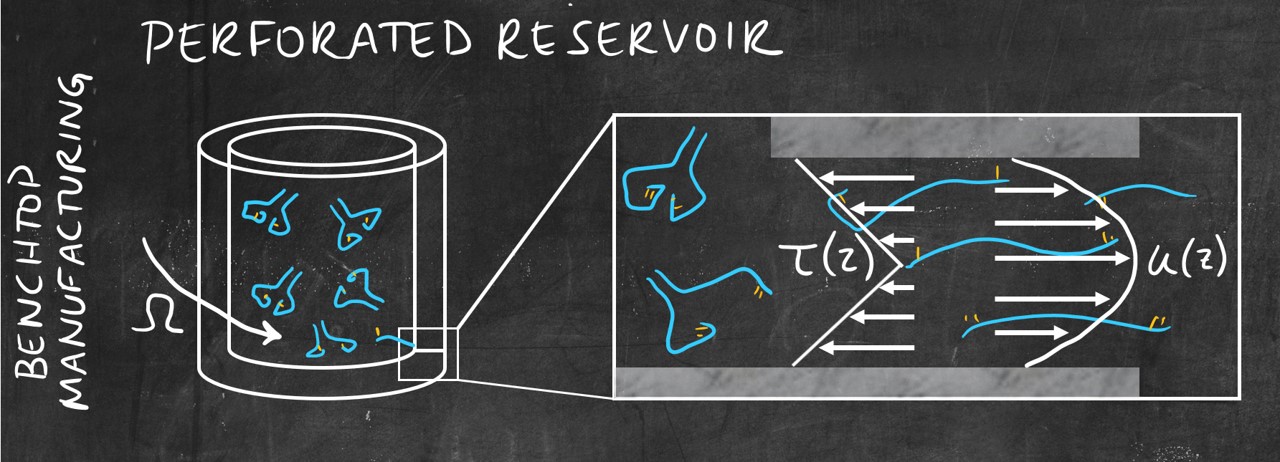 PERFORATED RESERVOIR
BENCHTOP
MANUFACTURING
Ω
τ(z)
u(z)